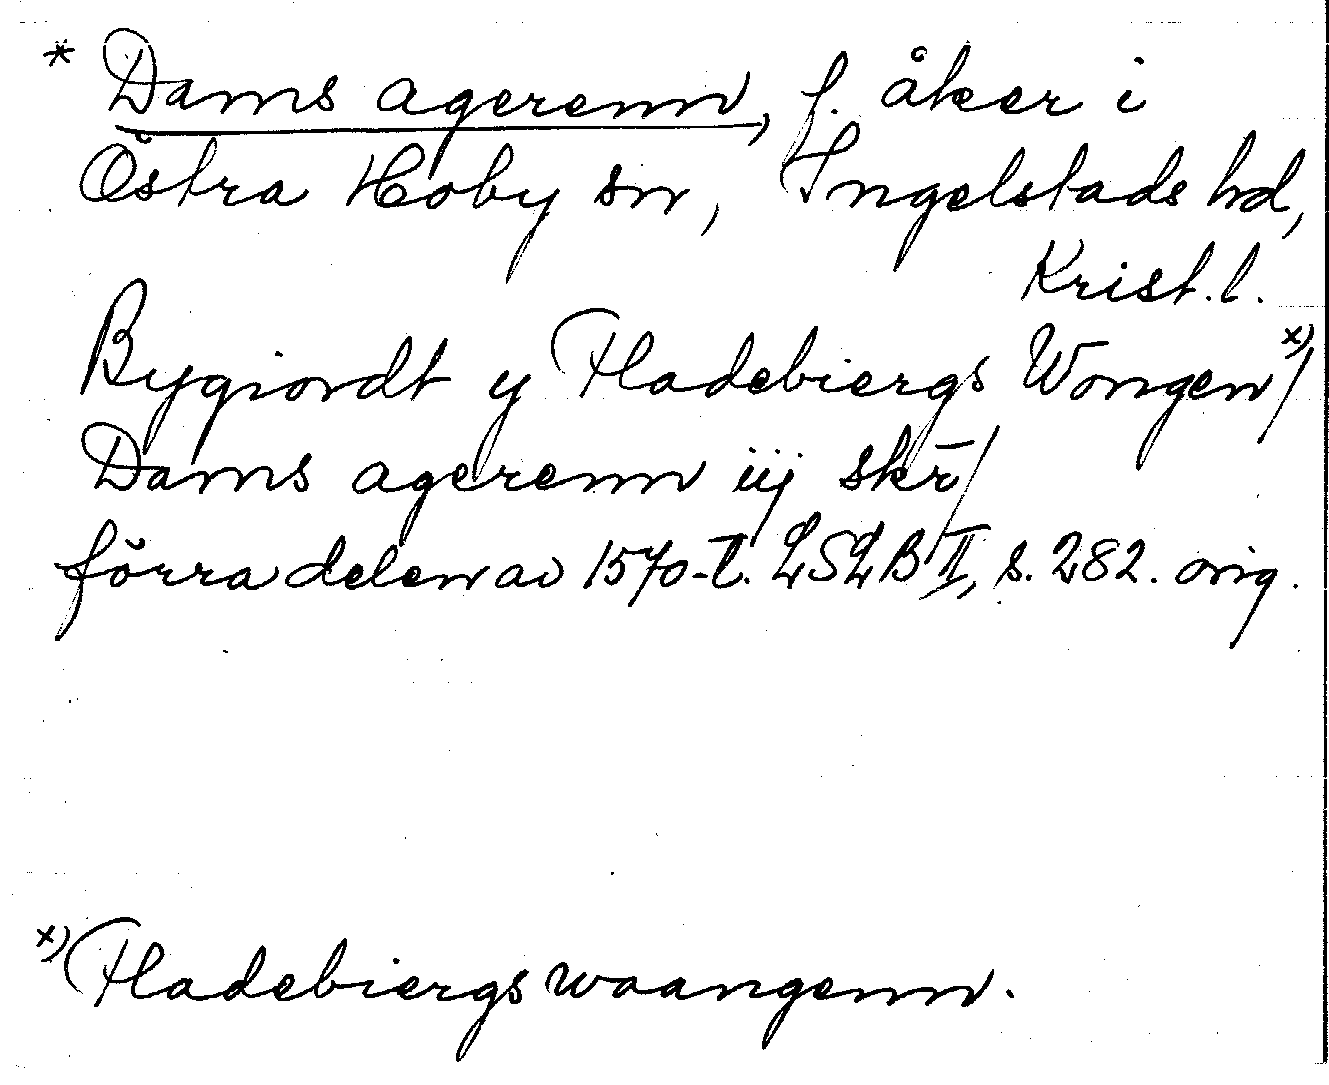 * Dams agerenn, f. åker i
Östra Hoby sn, Ingelstads hd,
Krist. l.
Bygiordt y Fladebiergs Wongen x)/
Dams agerenn iij skr̄/
förra delen av 1570-t. LSLB II, s. 282. orig.
x) Fladebiergs waangenn.